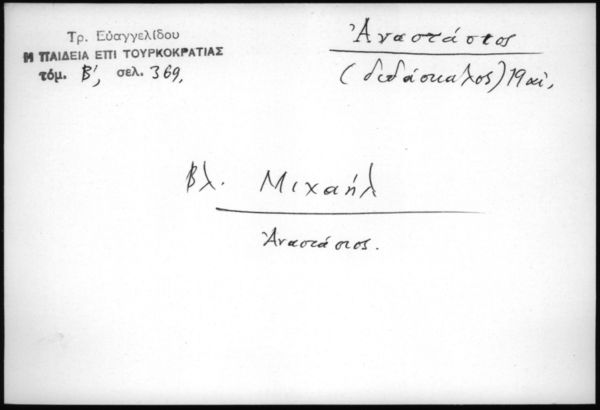 Τρ. Εὐαγγελίδου
Η ΠΑΙΔΕΙΑ ΕΠΙ ΤΟΥΡΚΟΚΡΑΤΙΑΣ
τόμ. Β', σελ. 369,
Ἀναστάσιος
(διδάσκαλος) 19 αἰ,
Βλ. Μιχαήλ
Ἀναστάσιος.